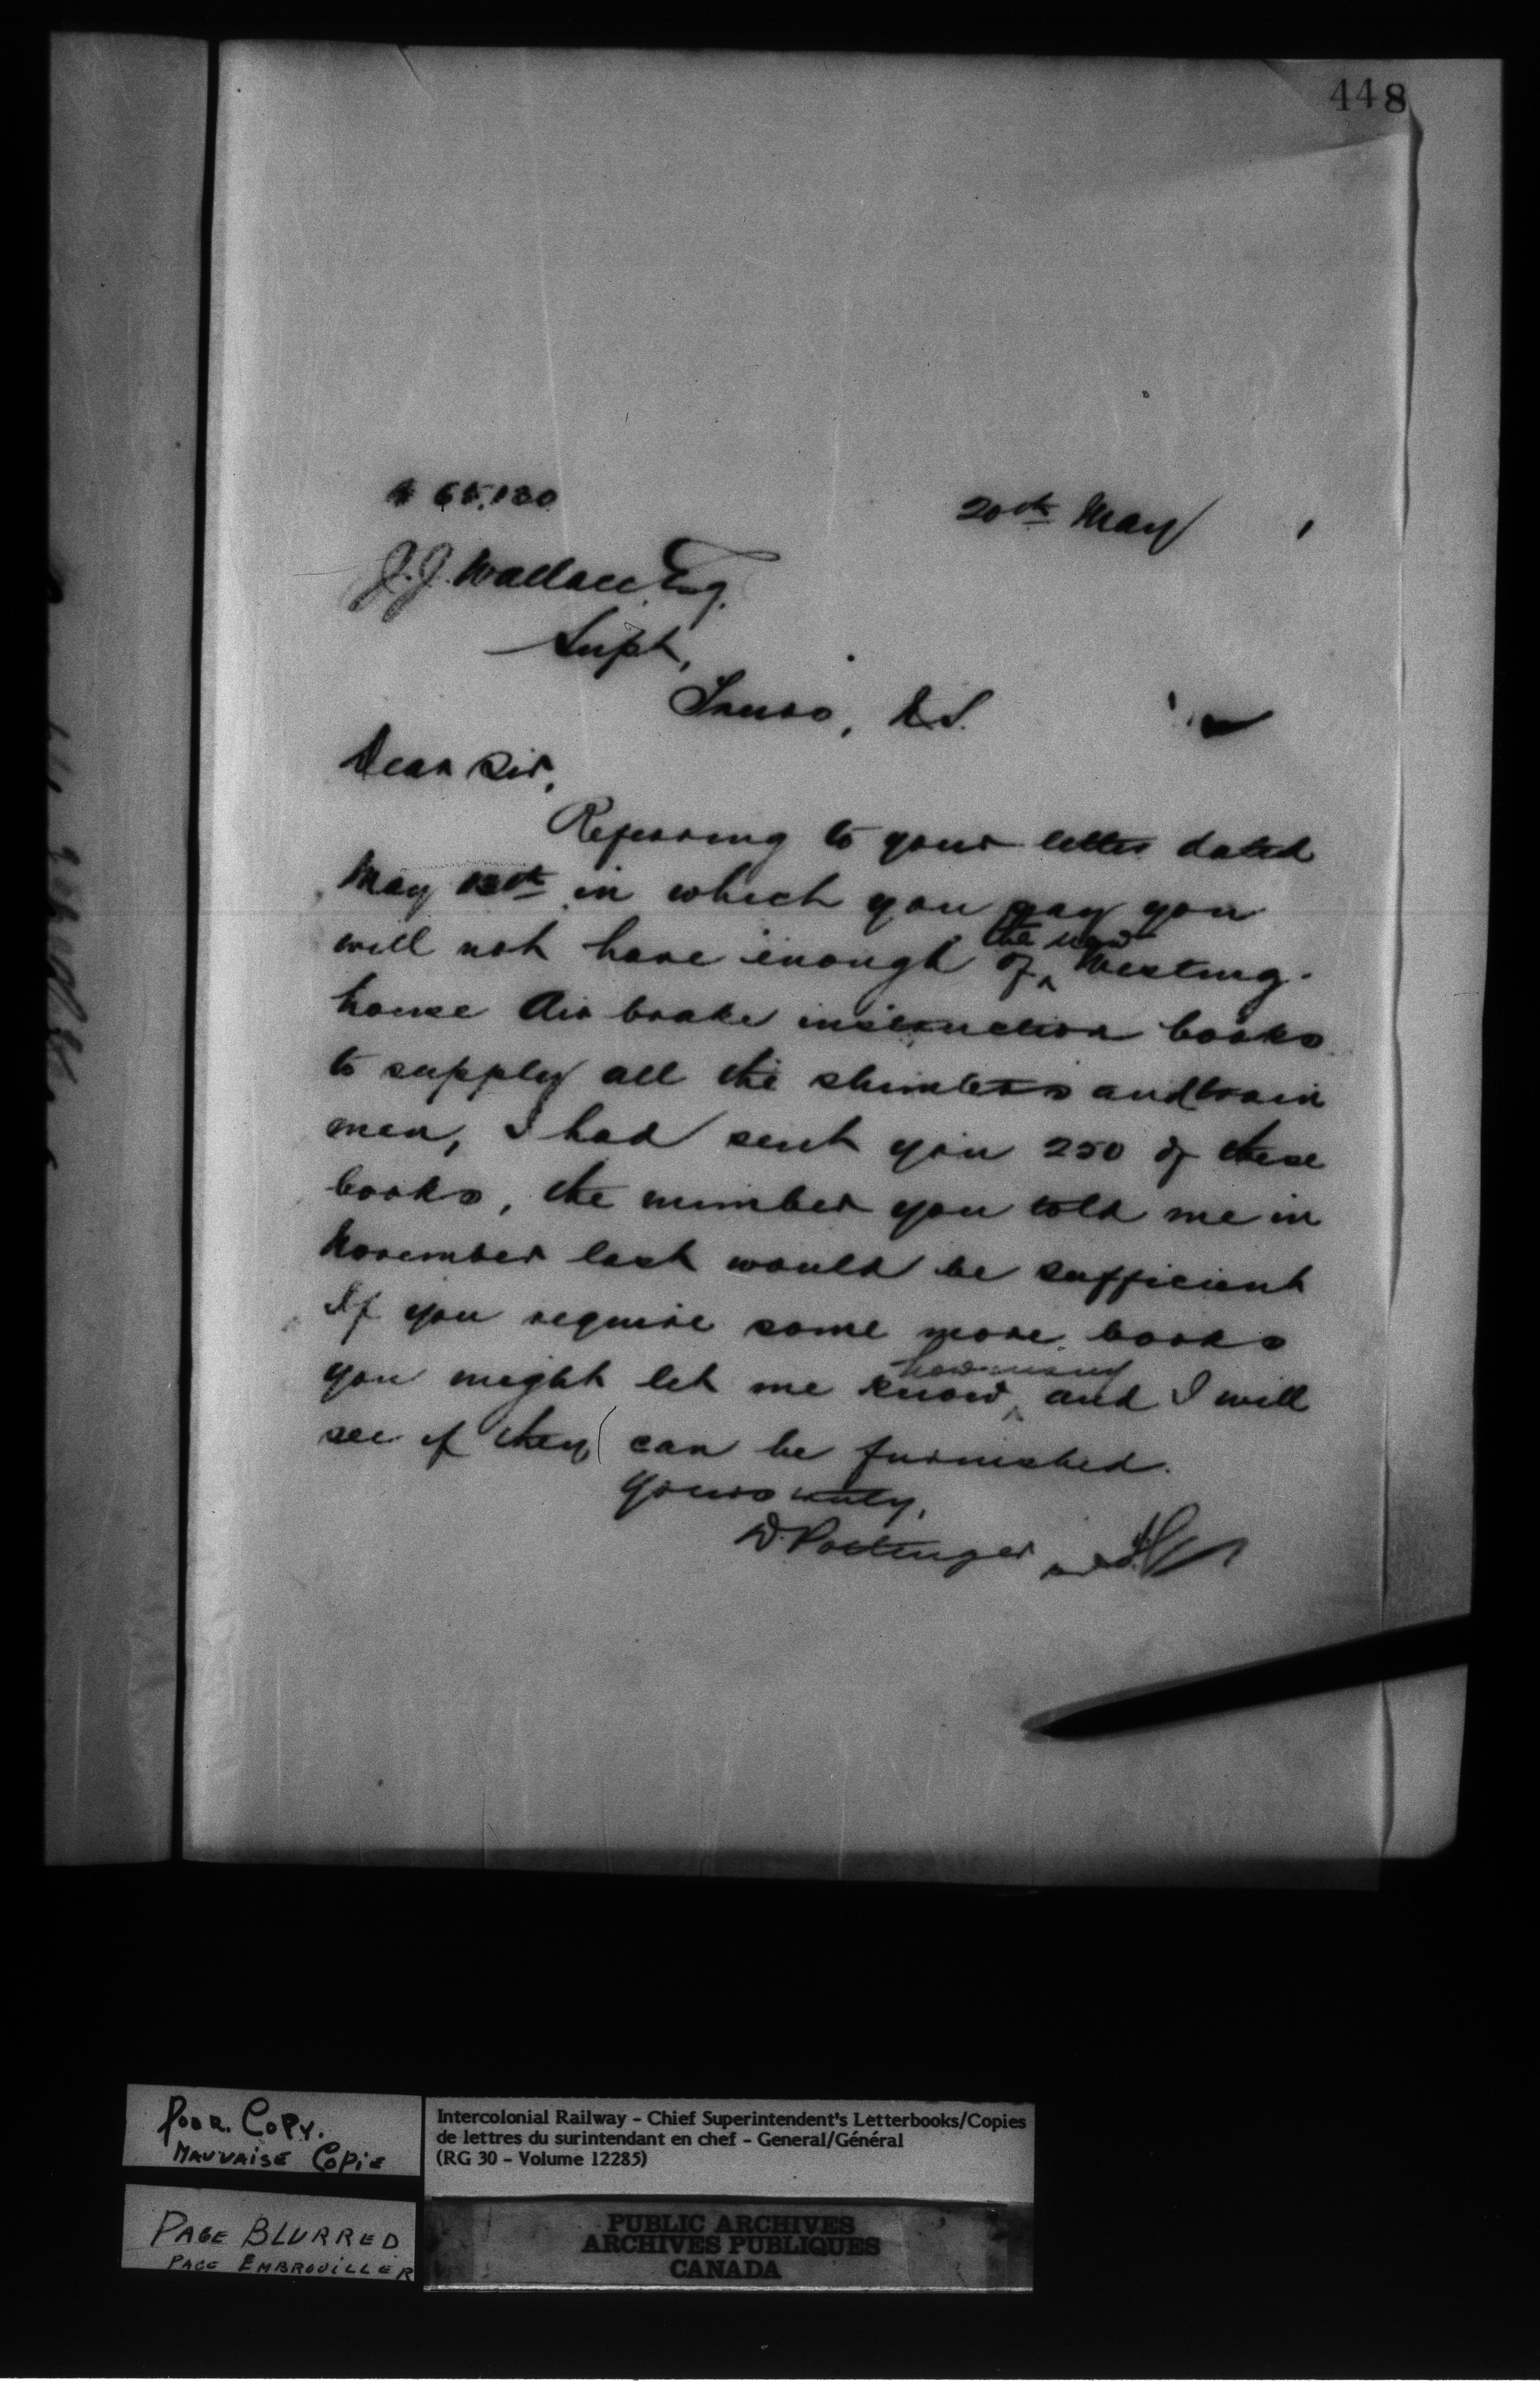 448
65,130
20th May
J. J. Wallace, Esq.
Supt,
Truro, N.S.
Dear Sir,
Referring to your letter dated
May 13th in which you say you
will not have enough of the new Westing-
house Air brake instruction books
to supply all the shunters and train
men, I had sent you 250 of these
books, the number you told me in
November last would be sufficient
If you require some more books
you might let me know how many and I will
see if they can be furnished.
Yours truly,
D. Pottinger
Poor Copy.
Mauvaise Copie
Intercolonial Railway - Chief Superintendent's Letterbooks/Copies
de lettres du surintendant en chef - General/Général
(RG 30 - Volume 12285)
Page Blurred
Page Embrouiller
PUBLIC ARCHIVES
ARCHIVES PUBLIQUES
CANADA